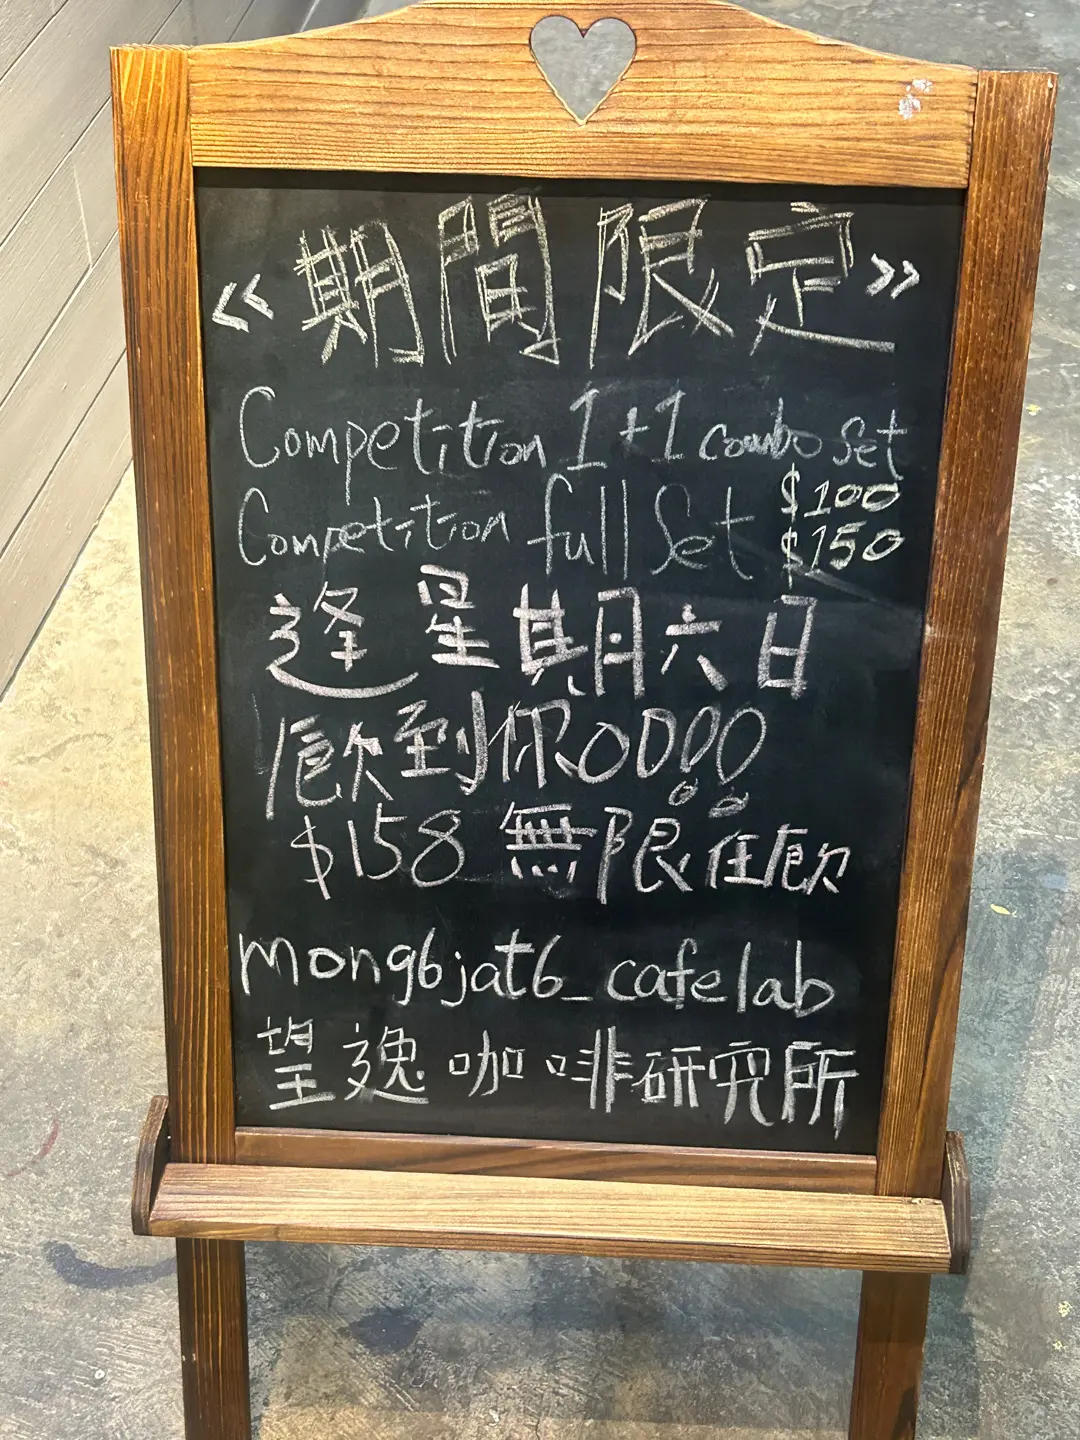 《期間限定》
Competition 1+1 combo Set $100
Competition full Set $150
逢星期六日
飲到你OOOO
$158 無限任飲
mong6jat6_cafelab
望逸咖啡研究所